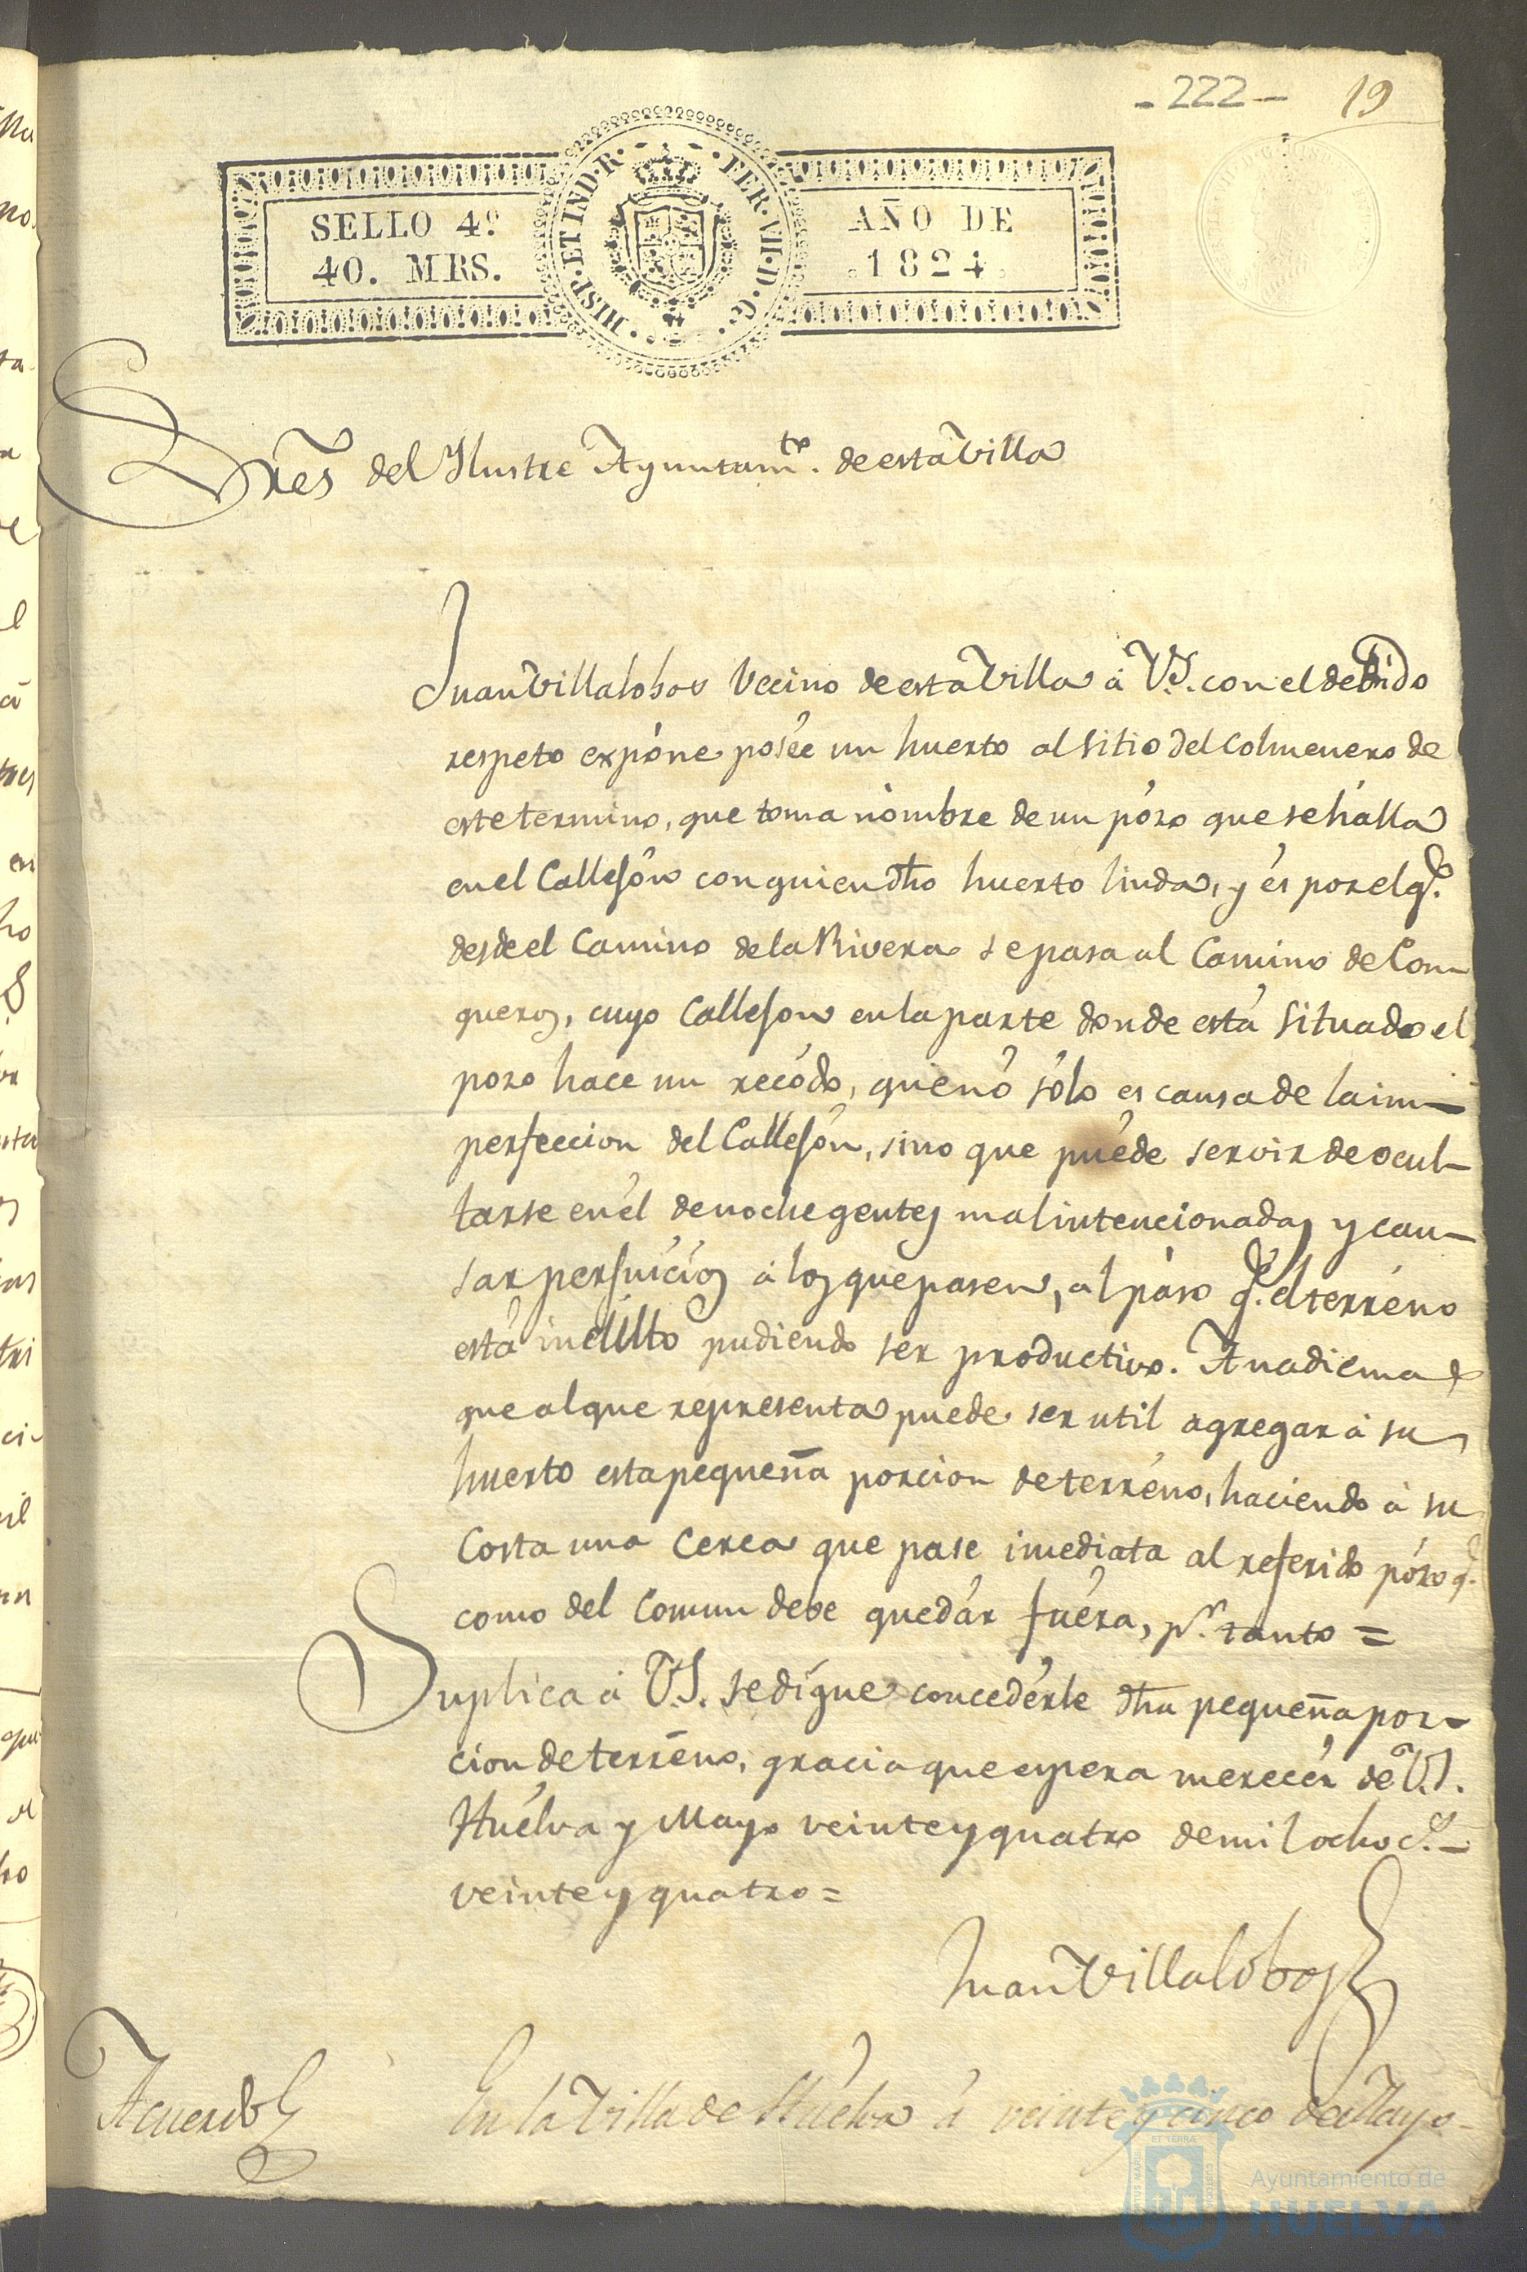 - 222 - 19
SELLO 4º
40. MRS.
HISP. ET IND. R. FER. VII. D. G.
AÑO DE
1824.
Sres del Ilustre Ayuntamto. de esta Villa
Juan Villalobos Vecino de esta Villa á V.S. con el debido
respeto expóne posée un huerto al sitio del Colmenero de
este termino, que toma nómbre de un pózo que se hálla
en el Callejón con quien dho huerto linda, y és por el qe.
desde el Camino de la Rivera se pasa al Camino de Con-
queros, cuyo Callejon en la parte donde está situado el
pozo hace un recódo, que nó sólo es causa de la im-
perfeccion del Callejón, sino que puéde servir de ocul-
tarse en él de noche gentes mal intencionadas y cau-
sar perjuicios á los que pasen, al páso qe. el terréno
está incúlto pudiendo ser productivo. Anadiema
que al que representa puede ser util agregar á su
huerto esta pequeña porcion de terréno, haciendo á su
costa una cerca que pase imediata al referido pózo qe.
como del Comun debe quedár fuéra, pr. tanto =
Suplica á V.S. se dígne concedérle dha pequeña por-
cion de terréno, gracia que espera merecér de V.S.
Huélva y Mayo veinte y quatro de mil ochocs.
veinte y quatro =
Juan Villalóbos
Acuerdo
En la Villa de Huelva á veinte y cinco de Mayo
Ayuntamiento de
HUELVA